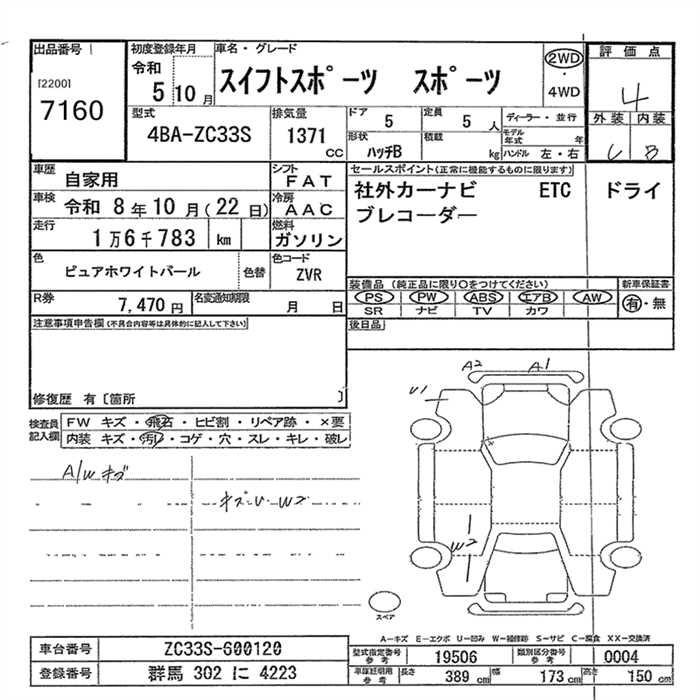 出品番号
[2200]
7160
初度登録年月
令和
5 10月
車名・グレード
スイフトスポーツ スポーツ
2WD
・
4WD
評価点
4
外装 内装
B
型式
4BA-ZC33S
排気量
1371
CC
ドア
5
定員
5 人
形状
ハッチB
積載
kg
ディーラー・並行
モデル年式 年
ハンドル 左・右
車歴
自家用
シフト
FAT
車検
令和 8年10月(22日)
冷房
AAC
走行
1万6千783 km
燃料
ガソリン
色
ピュアホワイトパール
色替
色コード
ZVR
R券
7,470円
名変通知期限
月 日
セールスポイント(正常に機能するものに限ります)
社外カーナビ ETC ドライ
ブレコーダー
装備品(純正品に限り○をつけてください)
新車保証書
PS PW ABS エアB AW
有・無
SR ナビ TV カワ
後日品
注意事項申告欄(不具合内容等は具体的に記入して下さい)
修復歴 有〔箇所 〕
検査員記入欄
FW キズ・飛石・ヒビ割・リペア跡・×要
内装 キズ・汚れ・コゲ・穴・スレ・キレ・破レ
A/W キズ
キズU W2
A2 A1
U1
W2
スペア
A-キズ E-エクボ U-凹み W-補修跡 S-サビ C-腐食 XX-交換済
車台番号
ZC33S-600120
登録番号
群馬 302 に 4223
型式指定番号
参考
19506
類別区分番号
参考
0004
車庫証明用
参考
長さ
389 cm
幅
173 cm
高さ
150 cm